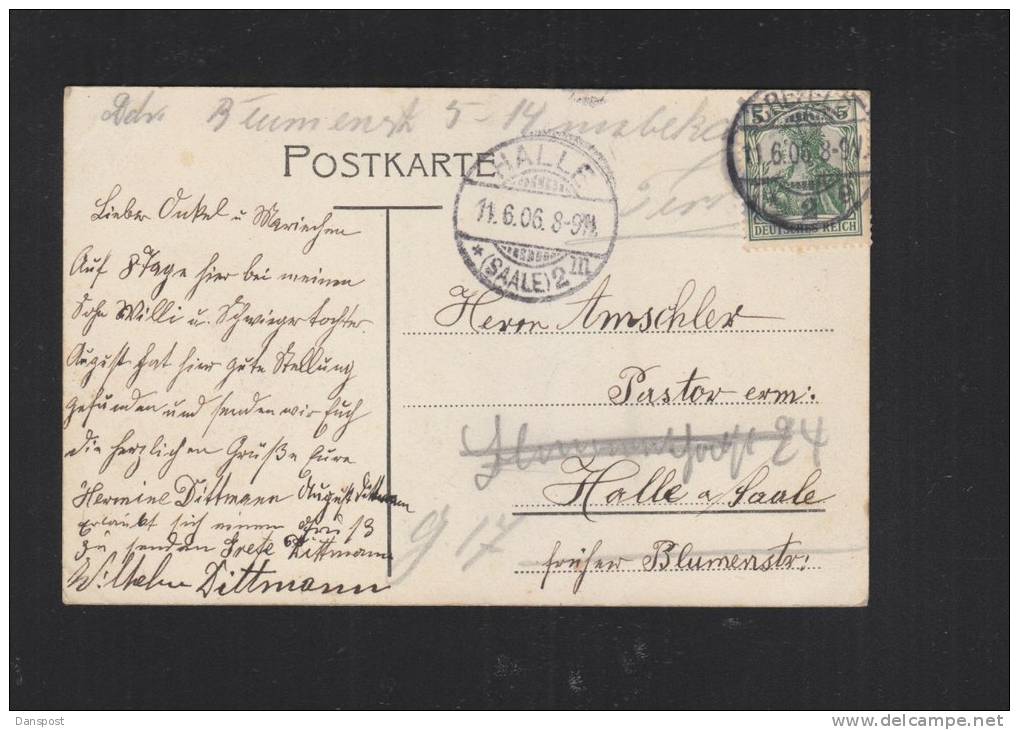 Adr. Blumenstr 5-14
POSTKARTE
HALLE
11.6.06. 8-9N.
* (SAALE) 2 m
5 5
11.6.06. 8-9N.
2
DEUTSCHES REICH
Lieber Onkel u Mariechen
Auf 8 Tage hier bei meinem
Sohn Willi u. Schwiegertochter
August hat hier gute Stellung
gefunden und senden wir Euch
die herzlichen Grüße Eure
Hermine Dittmann August Dittmann
erlaubt sich einen Gruß
zu senden Grete Dittmann
Wilhelm Dittmann
Herrn Amschler
Pastor erm:
24
Halle a Saale
früher Blumenstr:
g 17
Danspost
www.delcampe.net